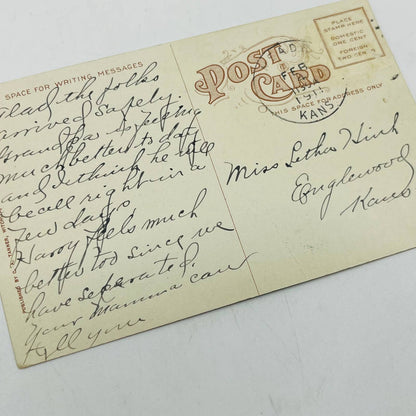 SPACE FOR WRITING MESSAGES
Glad the folks
arrived safely.
Grandpa is feeling
much better to day
and I think he will
be all right in a
few days.
Harry feels much
better too since we
have separated,
your mamma can
tell you
POST CARD
THIS SPACE FOR ADDRESS ONLY
PLACE
STAMP HERE
DOMESTIC
ONE CENT
FOREIGN
TWO CEN
FEB
KANS.
Miss Letha Hink
Englewood
Kans
PUBLISHED BY